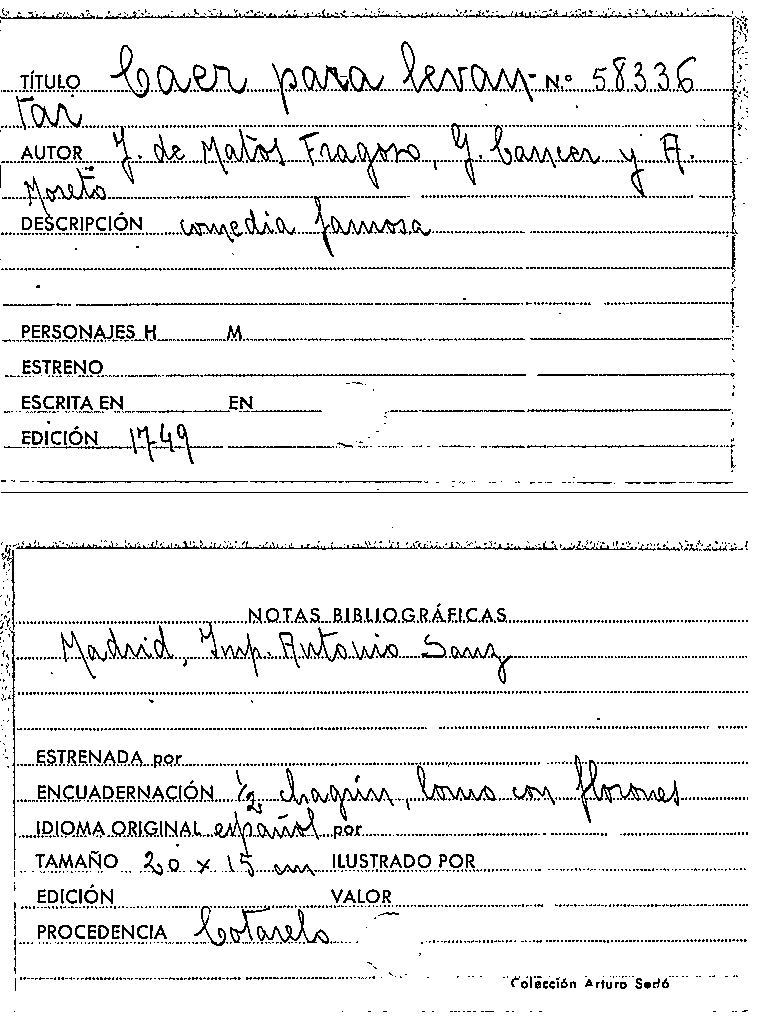 TÍTULO Caer para levan- N.º 58336
tar
AUTOR J. de Matos Fragoso, G. Cancer y A.
Moreto
DESCRIPCIÓN comedia famosa
PERSONAJES H M
ESTRENO
ESCRITA EN EN
EDICIÓN 1749
NOTAS BIBLIOGRÁFICAS
Madrid, Imp. Antonio Sanz
ESTRENADA por
ENCUADERNACIÓN ½ chagrín, lomo con florones
IDIOMA ORIGINAL español por
TAMAÑO 20 x 15 cm ILUSTRADO POR
EDICIÓN VALOR
PROCEDENCIA Cotarelo
Colección Arturo Sedó